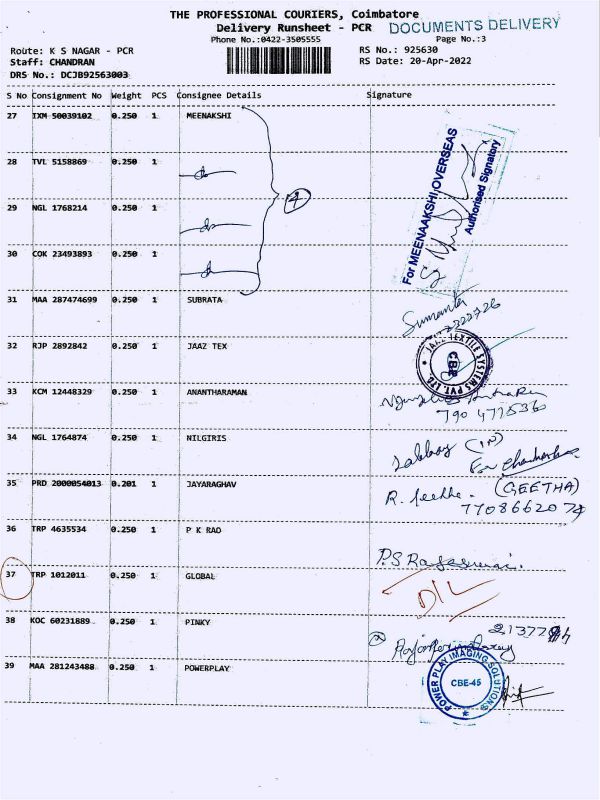 THE PROFESSIONAL COURIERS, Coimbatore
Delivery Runsheet - PCR DOCUMENTS DELIVERY
Phone No.:0422-3505555 Page No.:3
Route: K S NAGAR - PCR RS No.: 925630
Staff: CHANDRAN RS Date: 20-Apr-2022
DRS No.: DCJB92563003
S No Consignment No Weight PCS Consignee Details Signature
27 IXM 50039102 0.250 1 MEENAKSHI
28 TVL 5158869 0.250 1
29 NGL 1768214 0.250 1
30 COK 23493893 0.250 1
For MEENAAKSHI OVERSEAS
Authorised Signatory
31 MAA 287474699 0.250 1 SUBRATA
Sumanta
32 RJP 2892842 0.250 1 JAAZ TEX
JAAZ TEXTILE SYSTEMS PVT. LTD.
CBE
33 KCM 12448329 0.250 1 ANANTHARAMAN
34 NGL 1764874 0.250 1 NILGIRIS
35 PRD 2000054013 0.201 1 JAYARAGHAV
R. Geetha. (GEETHA)
7708662074
36 TRP 4635534 0.250 1 P K RAO
P.S Rajeswari.
37 TRP 1012011 0.250 1 GLOBAL
D/L
38 KOC 60231889 0.250 1 PINKY
39 MAA 281243488 0.250 1 POWERPLAY
POWER PLAY IMAGING SOLUTIONS
CBE-45